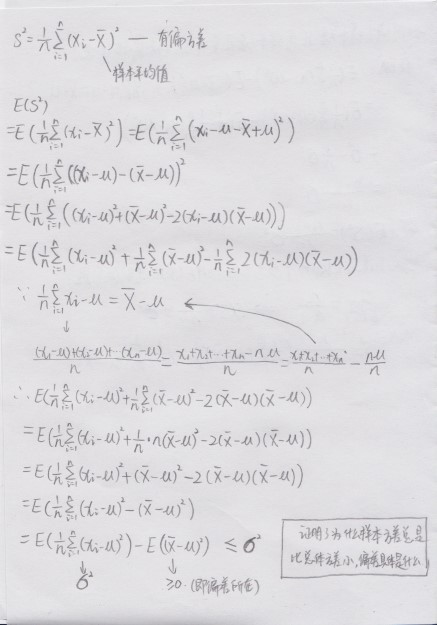 S²=1/n ∑ᵢ₌₁ⁿ (xᵢ-x̄)² — 有偏方差
样本平均值
E(S²)
=E(1/n ∑ᵢ₌₁ⁿ (xᵢ-x̄)²)=E(1/n ∑ᵢ₌₁ⁿ (xᵢ-u-x̄+u)²)
=E(1/n ∑ᵢ₌₁ⁿ ((xᵢ-u)-(x̄-u))²
=E(1/n ∑ᵢ₌₁ⁿ ((xᵢ-u)²+(x̄-u)²-2(xᵢ-u)(x̄-u)))
=E(1/n ∑ᵢ₌₁ⁿ (xᵢ-u)²+1/n ∑ᵢ₌₁ⁿ (x̄-u)²-1/n ∑ᵢ₌₁ⁿ 2(xᵢ-u)(x̄-u))
∵ 1/n ∑ᵢ₌₁ⁿ xᵢ-u = x̄-u
(x₁-u)+(x₂-u)+…(xₙ-u)/n = x₁+x₂+…+xₙ-nu/n = x₁+x₂+…+xₙ/n - nu/n
∴ E(1/n ∑ᵢ₌₁ⁿ (xᵢ-u)²+1/n ∑ᵢ₌₁ⁿ (x̄-u)²-2(x̄-u)(x̄-u))
=E(1/n ∑ᵢ₌₁ⁿ (xᵢ-u)²+1/n·n(x̄-u)²-2(x̄-u)(x̄-u))
=E(1/n ∑ᵢ₌₁ⁿ (xᵢ-u)²+(x̄-u)²-2(x̄-u)(x̄-u))
=E(1/n ∑ᵢ₌₁ⁿ (xᵢ-u)²-(x̄-u)²)
=E(1/n ∑ᵢ₌₁ⁿ (xᵢ-u)²)-E((x̄-u)²) ≤ σ²
σ² ≥0.(即偏差所在)
证明了为什么样本方差总是
比总体方差小,偏差具体是什么